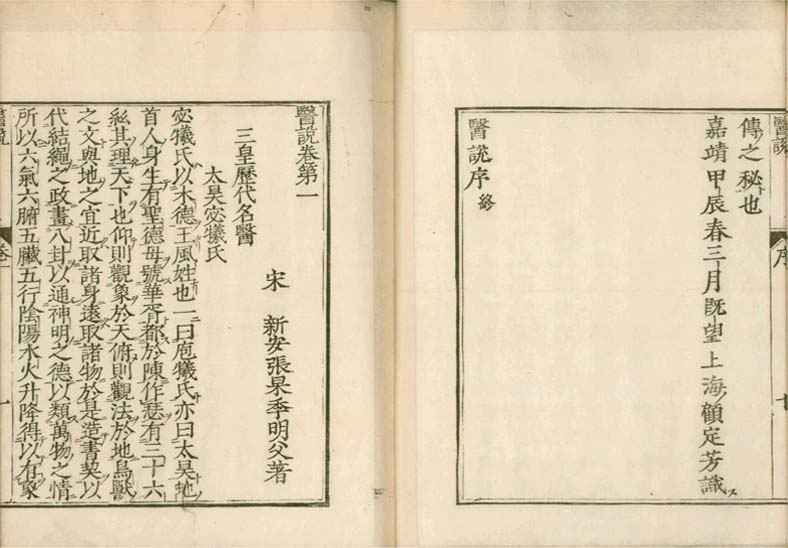 傳之秘也
嘉靖甲辰春三月既望上海顧定芳識ス
醫說序終
醫說
序
七
醫說卷第一
宋　新安張杲季明父著
三皇歷代名醫
太昊宓犧氏
宓犧氏以木德王風姓也一曰庖犧氏亦曰太昊地
首人身生有聖德母號華胥都於陳作瑟有三十六
絃其理天下也仰則觀象於天俯則觀法於地鳥獸
之文與地之宜近取諸身遠取諸物於是造書契以
代結繩之政畫八卦以通神明之德以類萬物之情
所以六氣六腑五臟五行陰陽水火升降得以有象
醫說
卷一